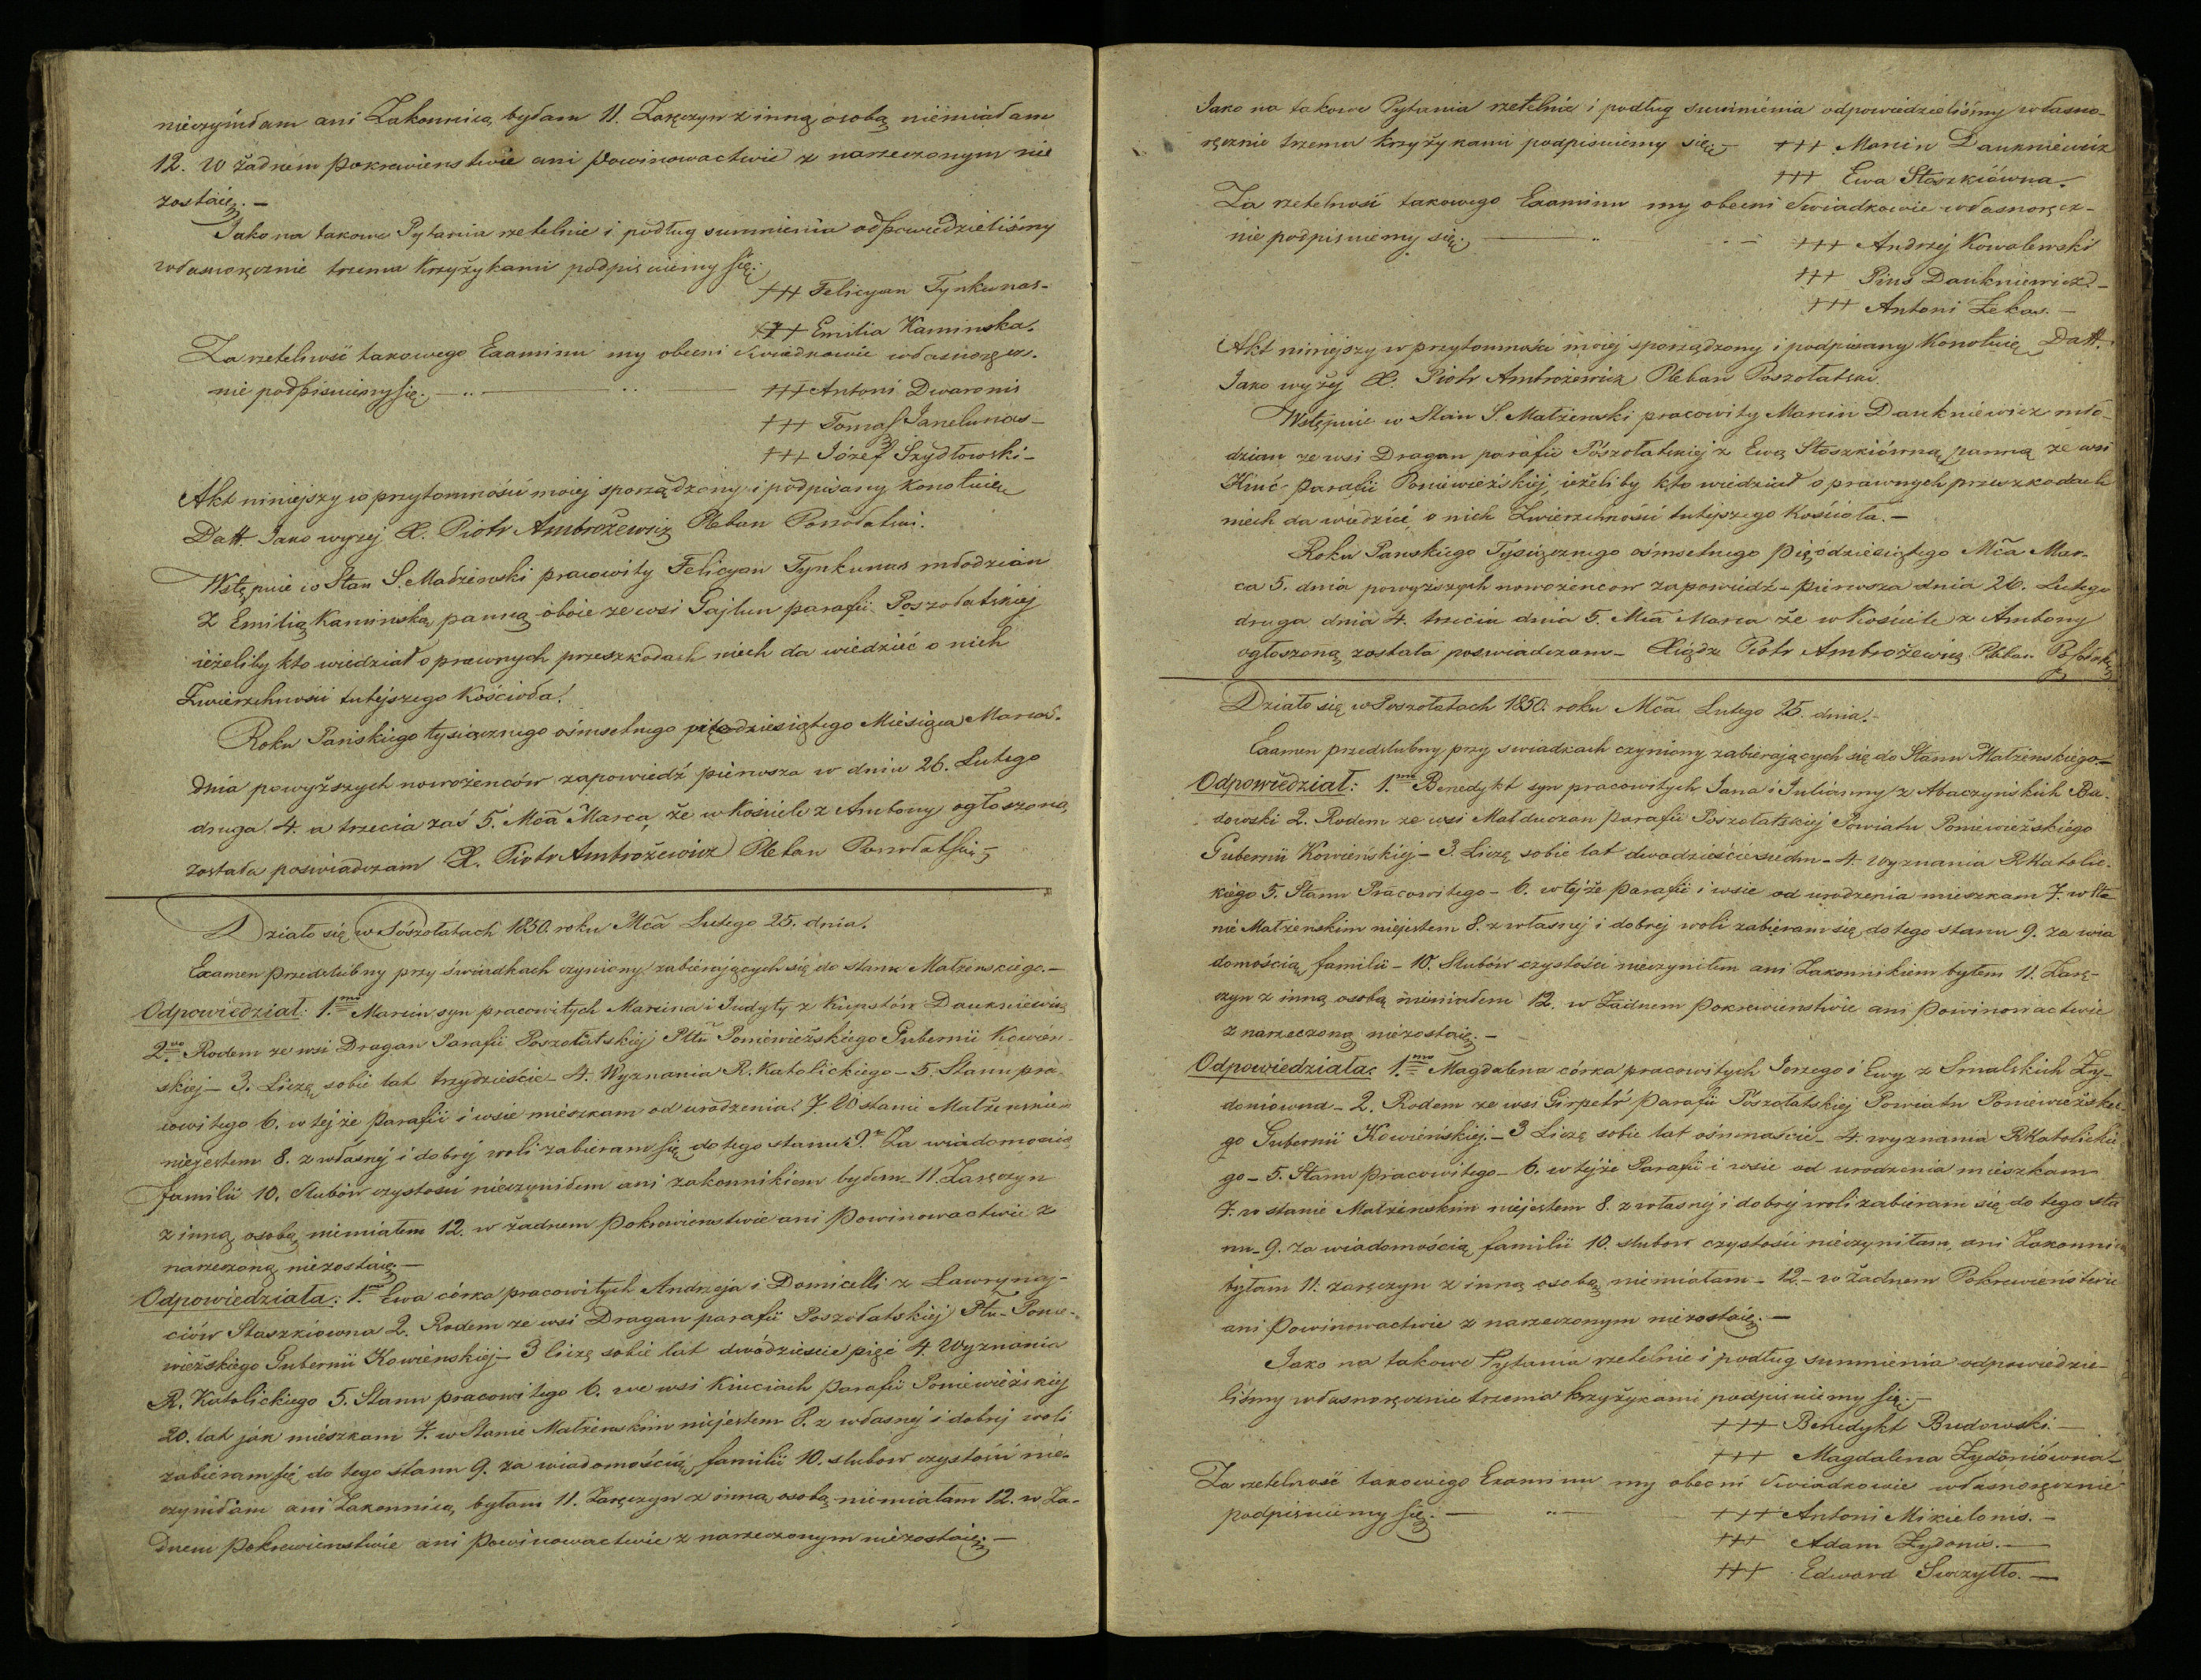 nieczyniłam ani Zakonnicą byłam 11. Zaręczyn z inną osobą niemiałam
12. W żadnem pokrewienstwie ani powinowactwie z narzeczonym nie
zostaię. —
Jako na takowe Pytania rzetelnie i podług sumnienia odpowiedzieliśmy
własnoręcznie trzema krzyżykami podpisuiemy się.
+++ Felicyan Tynkunas -
+++ Emilia Kaminska.
Za rzetelność takowego Examinu my obecni Swiadkowie własnoręcz-
nie podpisuiemy się. —
+++ Antoni Dwaronis
+++ Tomasz Janelunas -
+++ Józef Szydłowski -
Akt niniejszy w przytomności moiej sporządzony i podpisany Konotuię
Datt. Jako wyżej X. Piotr Ambrożewicz Pleban Poszołatski.
Wstępuie w Stan S. Małżenski pracowity Felicyan Tynkunas młodzian
z Emilią Kaminską panną oboie ze wsi Gajlun parafii Poszołatskiej
ieżeliby kto wiedział o prawnych przeszkodach niech da wiedzieć o nich
Zwierzchności tutejszego Kościoła.
Roku Pańskiego tysiącznego ośmsetnego pięcdziesiątego Miesiąca Marca 5.
dnia powyższych nowożenców zapowiedź pierwsza w dniu 26. Lutego
druga 4. a trzecia zaś 5. Mča Marca, że w Kościele z Ambony ogłoszoną
została poswiadczam X. Piotr Ambrożewicz Pleban Poszołatski
Działo się w Poszołatach 1850. roku Mča Lutego 25. dnia.
Examen przedslubny przy świadkach czyniony zabierających się do stanu Małżenskiego. —
Odpowiedział: 1.mo Marcin syn pracowitych Marcina i Judyty z Kupstów Daukniewicz
2.do Rodem ze wsi Dragan Parafii Poszołatskiej Pttu Poniewieżskiego Gubernii Kowień-
skiej — 3. Liczę sobie lat trzydzieście — 4. Wyznania R. Katolickiego — 5. Stanu pra-
cowitego 6. w tejże Parafii i wsie mieszkam od urodzenia 7. W stanie Małżenskim
niejestem 8. z własnej i dobrej woli zabieram się do tego stanu 9. Za wiadomoscią
familii 10. slubów czystości nieczyniłem ani zakonnikiem byłem — 11. Zaręczyn
z inną osobą niemiałem 12. w żadnem pokrewienstwie ani powinowactwie z
narzeczoną niezostaię —
Odpowiedziała: 1.mo Ewa córka pracowitych Andrzeja i Domicelli z Ławrynaj-
ciów Staszkiowna 2. Rodem ze wsi Dragan parafii Poszołatskiej Pttu Ponie-
wieżskiego Gubernii Kowienskiej — 3 liczę sobie lat dwódziescie pięć 4 Wyznania
R. Katolickiego 5. Stanu pracowitego 6. we wsi Kiuciach parafii Poniewieżskiej
20. lat jak mieszkam 7. w Stanie Małżenskim niejestem 8. z własnej i dobrej woli
zabieram się do tego stanu 9. za wiadomością familii 10. slubow czystości nie-
czyniłam ani Zakonnicą, byłam 11. Zaręczyn z inną osobą niemiałam 12. w Ża-
dnem pokrewienstwie ani powinowactwie z narzeczonym niezostaię. —
Jako na takowe Pytania rzetelnie i podług sumnienia odpowiedzieliśmy własno-
ręcznie trzema krzyżykami podpisuiemy się. — +++ Marcin Daukniewicz
+++ Ewa Staszkiówna.
Za rzetelność takowego Examinu my obecni Swiadkowie własnoręcz-
nie podpisuiemy się. —
+++ Andrzej Kowalewski
+++ Pius Daukniewicz. —
+++ Antoni Lekas. —
Akt niniejszy w przytomności moiej sporządzony i podpisany Konotuię Datt.
Jako wyżej X. Piotr Ambrożewicz Pleban Poszołatski.
Wstępuie w Stan S. Małżenski pracowity Marcin Daukniewicz mło-
dzian ze wsi Dragan parafii Poszołatskiej z Ewą Staszkiówną panną ze wsi
Kiuć parafii Poniewieżskiej, ieżeliby kto wiedział o prawnych przeszkodach
niech da wiedzieć o nich Zwierzchności tutejszego Kościoła. —
Roku Panskiego Tysiącznego ośmsetnego pięćdziesiątego Mča Mar-
ca 5. dnia powyższych nowożencow zapowiedź — pierwsza dnia 26. Lutego
druga dnia 4. trzecia dnia 5. Mča Marca że w Kościele z Ambony
ogłoszoną została poswiadczam — Xiądz Piotr Ambrożewicz Pleban
Działo się w Poszołatach 1850. roku Mča Lutego 25. dnia. —
Examen przedslubny przy swiadkach czyniony zabierających się do Stanu Małżenskiego —
Odpowiedział: 1.mo Benedykt syn pracowitych Jana i Julianny z Abaczyńskich Bu-
dowski 2. Rodem ze wsi Małduczan parafii Poszołatskiej Powiatu Poniewieżskiego
Gubernii Kowieńskiej — 3. Liczę sobie lat dwadzieście siedm — 4. wyznania R Katolic-
kiego 5. Stanu Pracowitego — 6. w tejże parafii i wsie od urodzenia mieszkam 7. w Sta-
nie Małżenskim niejestem 8. z własnej i dobrej woli zabieram się do tego stanu 9. za wia
domością familii — 10. Slubów czystości nieczyniłem ani Zakonnikiem byłem 11. Zarę-
czyn z inną osobą niemiałem 12. w Żadnem pokrewienstwie ani powinowactwie
z narzeczoną niezostaię. —
Odpowiedziała: 1.mo Magdalena córka pracowitych Jerzego i Ewy z Smalskich Ży-
doniowna — 2. Rodem ze wsi Girpetr parafii Poszołatskiej Powiatu Poniewieżskie-
go Gubernii Kowieńskiej. — 3 Liczę sobie lat ośmnaście — 4. wyznania R Katolickie
go — 5. Stanu pracowitego — 6. w tejże Parafii i wsie od urodzenia mieszkam
7. w stanie Małżenskim niejestem 8. z własnej i dobrej woli zabieram się do tego sta
nu — 9. za wiadomością familii 10. slubow czystości nieczyniłam, ani Zakonnicą
byłam 11. zaręczyn z inną osobą niemiałam — 12. — w żadnem Pokrewieństwie
ani powinowactwie z narzeczonym niezostaię. —
Jako na takowe Pytania rzetelnie i podług sumnienia odpowiedzie-
liśmy własnoręcznie trzema krzyżykami podpisuiemy się. —
+++ Benedykt Budowski. —
+++ Magdalena Żydoniówna —
Za rzetelność takowego Examinu my obecni Swiadkowie własnoręcznie
podpisuiemy się. —
+++ Antoni Mikielonis. —
+++ Adam Żydonis. —
+++ Edward Surzytło. —